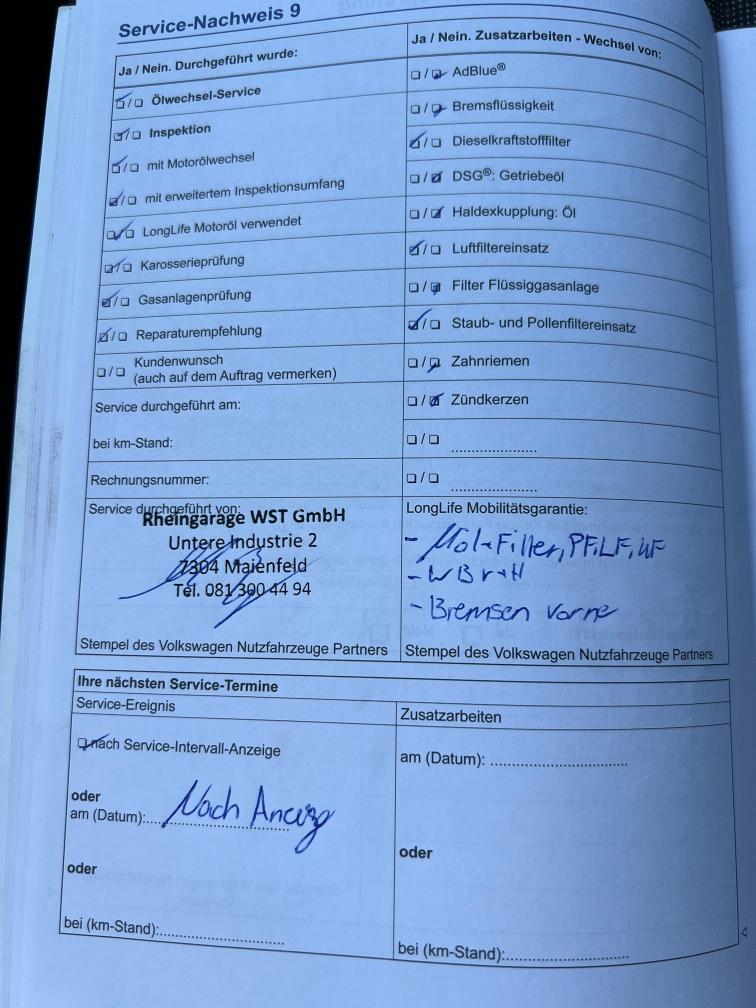 Service-Nachweis 9
Ja / Nein. Durchgeführt wurde:
Ölwechsel-Service
Inspektion
mit Motorölwechsel
mit erweitertem Inspektionsumfang
LongLife Motoröl verwendet
Karosserieprüfung
Gasanlagenprüfung
Reparaturempfehlung
Kundenwunsch
(auch auf dem Auftrag vermerken)
Service durchgeführt am:
bei km-Stand:
Rechnungsnummer:
Service durchgeführt von:
Rheingarage WST GmbH
Untere Industrie 2
7304 Maienfeld
Tel. 081 300 44 94
Stempel des Volkswagen Nutzfahrzeuge Partners
Ja / Nein. Zusatzarbeiten - Wechsel von:
AdBlue®
Bremsflüssigkeit
Dieselkraftstofffilter
DSG®: Getriebeöl
Haldexkupplung: Öl
Luftfiltereinsatz
Filter Flüssiggasanlage
Staub- und Pollenfiltereinsatz
Zahnriemen
Zündkerzen
LongLife Mobilitätsgarantie:
Filter, PF, LF,
- Bremsen vorne
Stempel des Volkswagen Nutzfahrzeuge Partners
Ihre nächsten Service-Termine
Service-Ereignis
nach Service-Intervall-Anzeige
oder
am (Datum): Nach
oder
bei (km-Stand):
Zusatzarbeiten
am (Datum):
oder
bei (km-Stand):